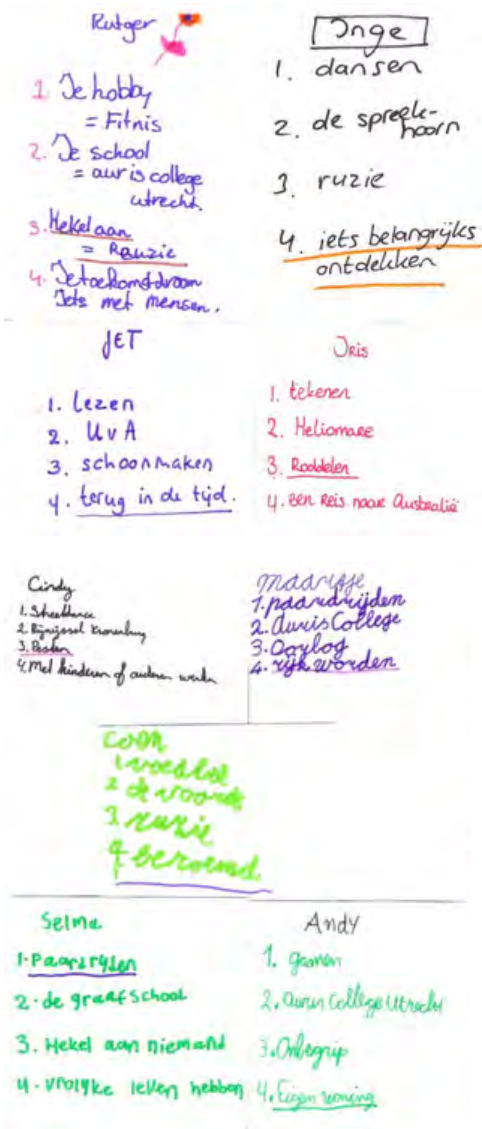 Rutger
1 Je hobby
= Fitnis
2. Je school
= auris college
utrecht.
3. Hekel aan
= Reuzie
4. Je toekomstdroom
Iets met mensen.
Inge
1. dansen
2. de spreek-
hoorn
3. ruzie
4. iets belangrijks
ontdekken
JET
1. lezen
2. UvA
3. schoonmaken
4. terug in de tijd.
Iris
1. tekenen
2. Heliomare
3. Roddelen
4. een Reis naar Australië
Cindy
1. Streetdance
2. Rijnijssel Kronenburg
3. Pesten
4. Met kinderen of anderen werken
maartje
1. paardrijden
2. Auris College
3. Oorlog
4. rijk worden
Coen
1 voetbal
2 de voorde
3 ruzie
4 beroemd
Selma
1. Paardrijden
2. de graafschool
3. Hekel aan niemand
4. vrolyke leven hebben
Andy
1. gamen
2. Auris College Utrecht
3. Onbegrip
4. Eigen woning